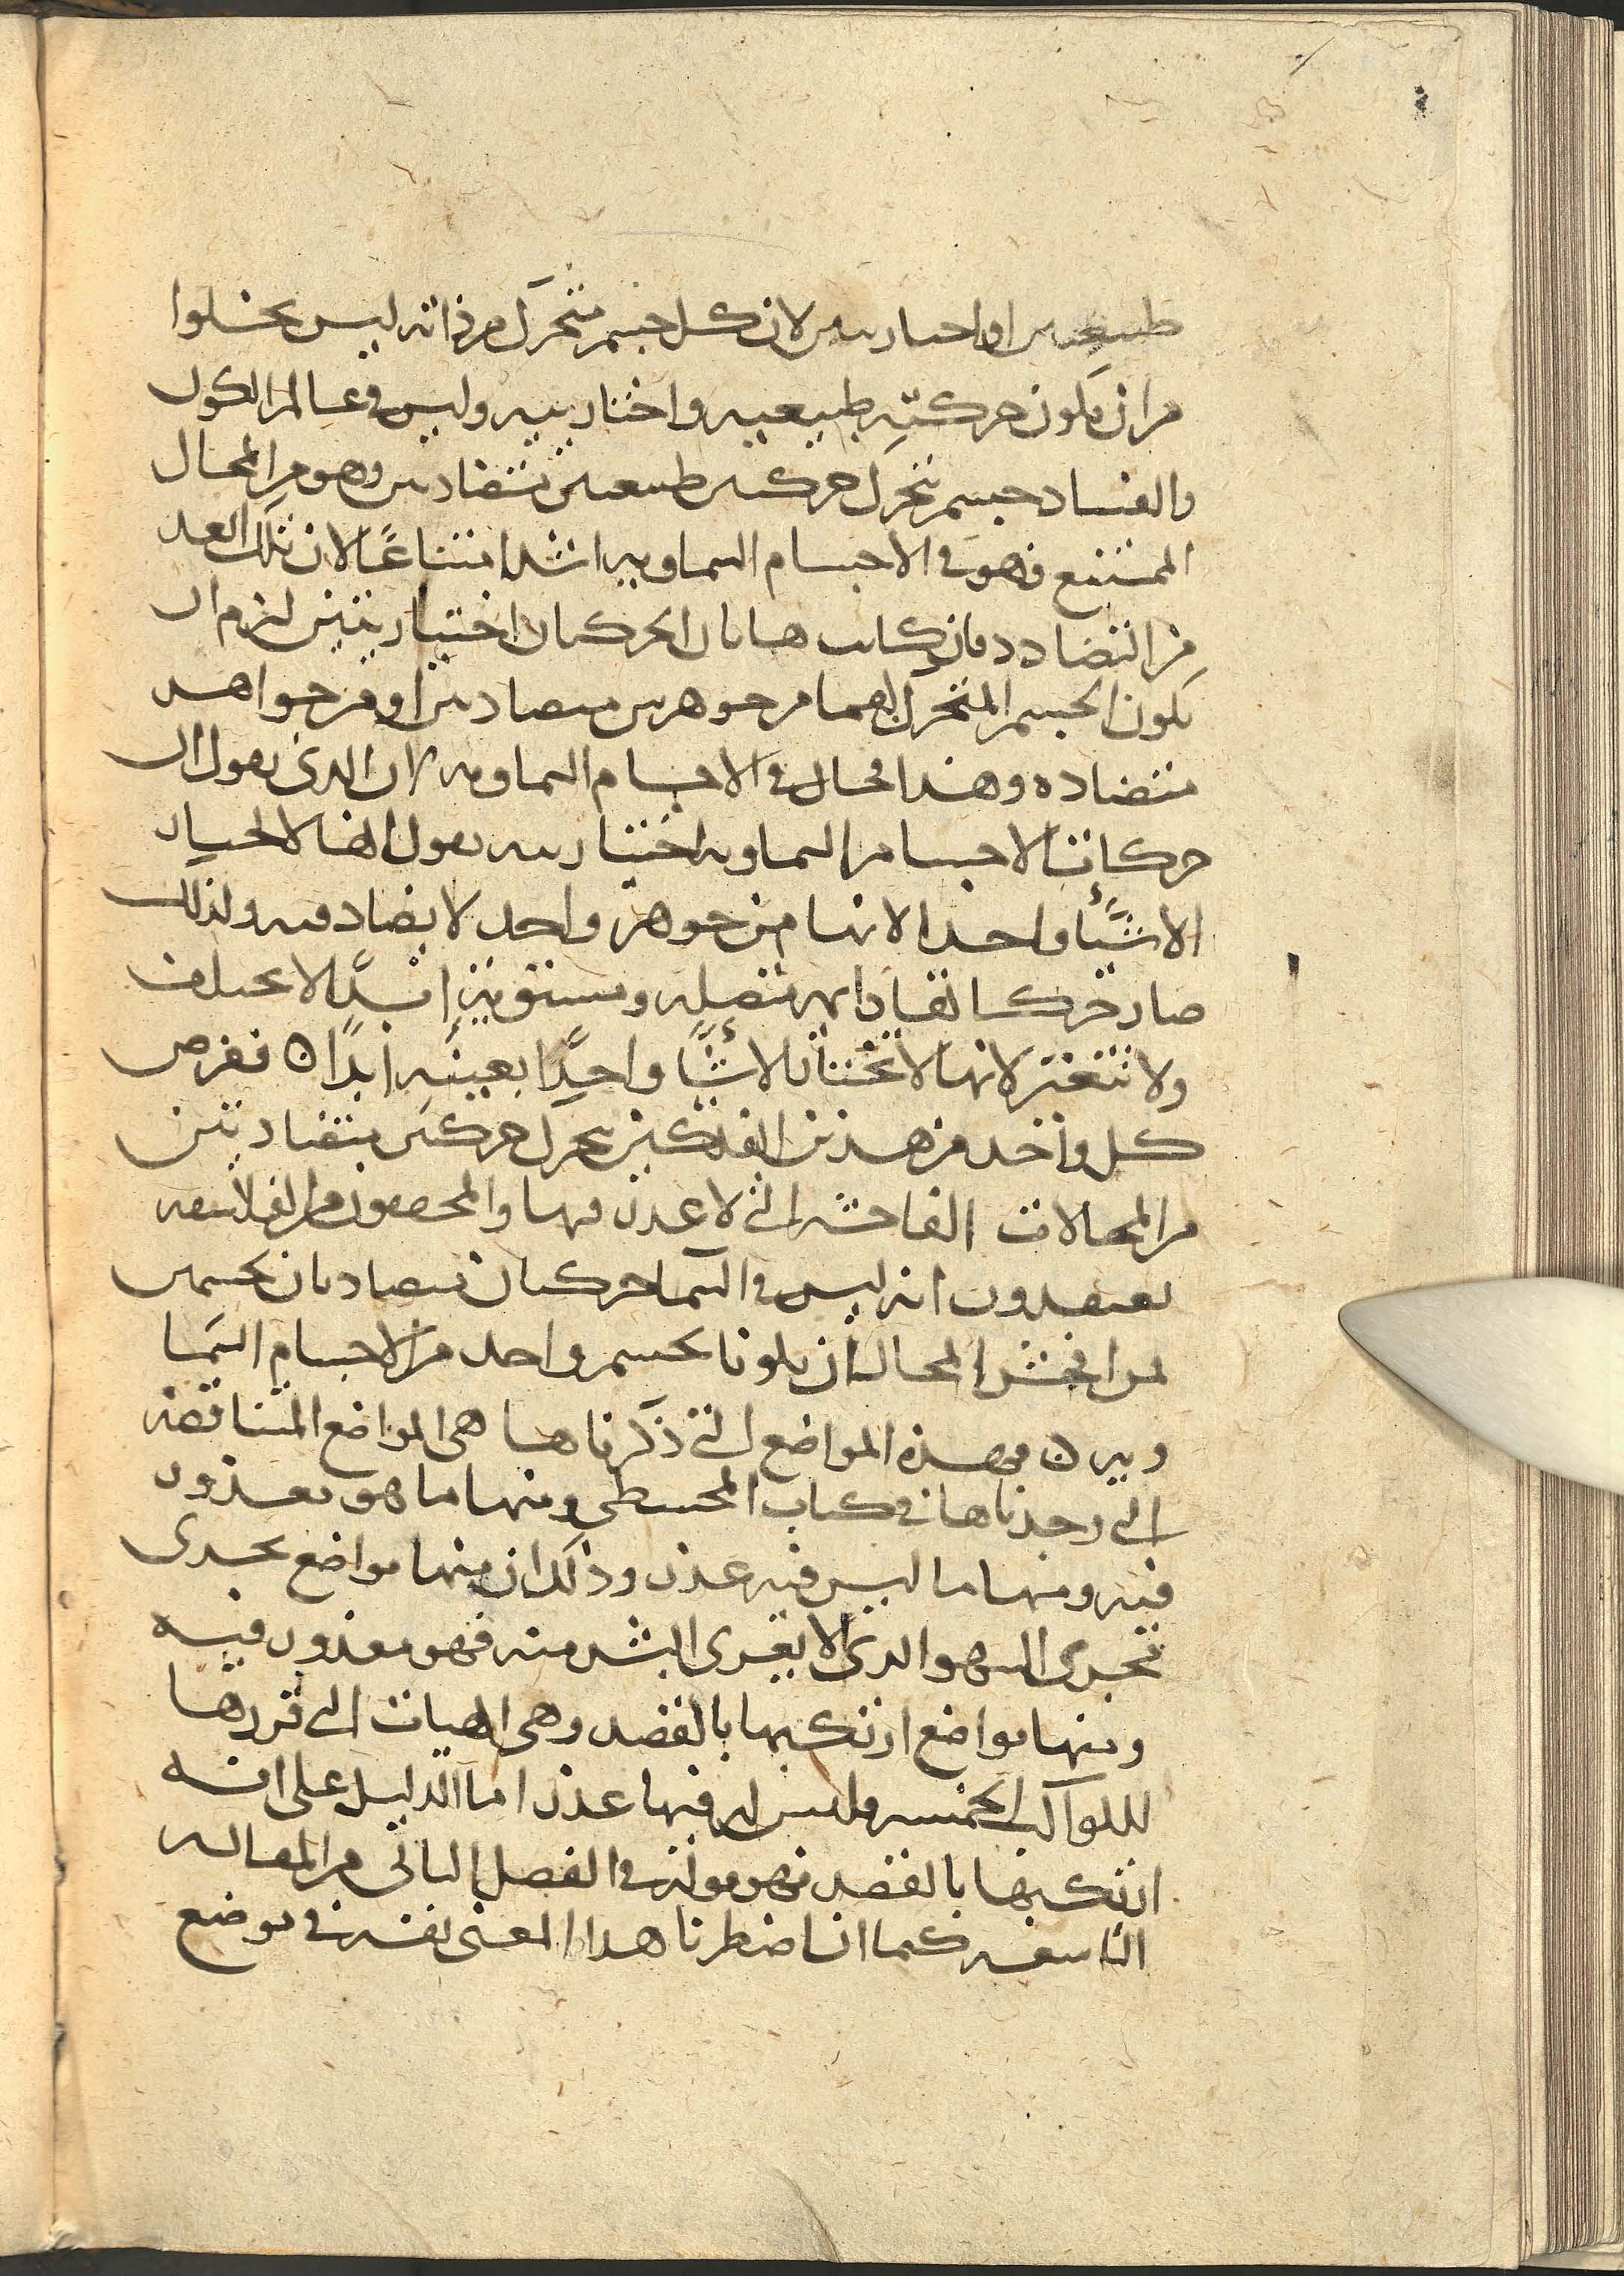 طبيعيتين او اختياريتين لان كل جسم متحرك من ذاته ليس يخلوا
من ان يكون حركته طبيعيه واختياريه وليس فى عالم الكون
والفساد جسم يتحرك حركتين طبيعيتين متضادتين وهو من المحال
الممتنع فهو فى الاجسام السماويه اشد امتناعًا لان تلك ابعد
من التضادد فان كانت هاتان الحركتان اختياريتين لزم ان
يكون الجسم المتحرك بهما من جوهرين متضادين او من جواهد
متضاده وهذا محال فى الاجسام السماويه لان الذى يقول ان
حركات الاجسام السماويه اختياريه يقول انها لا تختار
الا شيًأ واحدا لانها من جوهر واحد لا تضاد فيه ولذلك
صار حركاتها دايمه متصله ومستويه ابدًا لا تختلف
ولا تتغير لانها لا تختار الا شيأً واحدًا بعينه ابدًا ٥ ففرض
كل واحد من هذين الفلكين يتحرك حركتين متضادتين
من المحالات الفاحشه التى لا عذر فيها والمحصلون من الفلاسفه
يعتقدون انه ليس فى السما حركتان متضادتان لجسمين
فمن افحش المحال ان يكونا لجسم واحد من الاجسام السما
ويه ٥ فهذه المواضع التى ذكرناها هى المواضع المتناقضه
التى وجدناها فى كتاب المجسطى ومنها ما هو معذور
فيه ومنها ما ليس فيه عذر وذلك ان منها مواضع تجرى
مجرى السهو الذى لا يعرى البشر منه فهو معذور فيه
ومنها مواضع ارتكبها بالقصد وهى الهيات التى قررها
للكواكب الخمسه فليس له فيها عذر اما الدليل على انه
ارتكبها بالقصد فهو قوله فى الفصل الثانى من المقاله
التاسعه كما انا اضطرنا هذا المعنى نفسه فى موضع